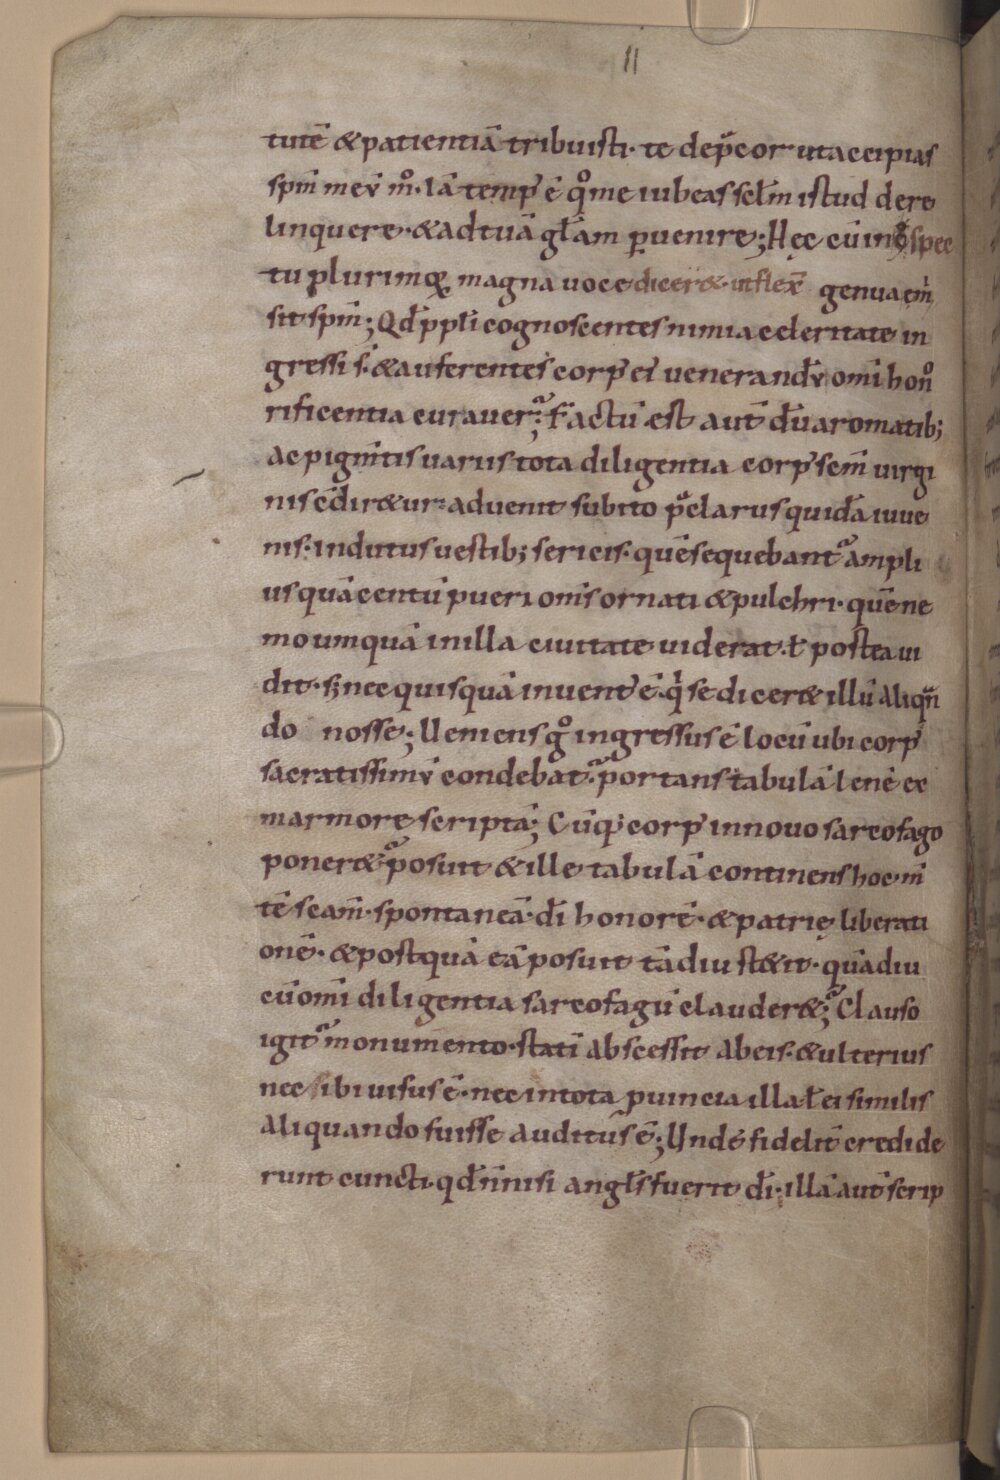 II
tutē & patientiā tribuisti· te dep̄cor ut accipias
spm̄ meū m°· Iā temp' ē q°me iubeas scl̄m istud dere
linquere· & ad tuā gl̄am ꝑuenire; Hęc cū in spec
tu plurimoꝝ magna uoce dicer& inflex̄ genua emi
sit spm̄; Qd̄ ppl̄i cognoscentes nimia celeritate in
gressi s̄· & auferentes corp' ei' uenerandū om̄i hono
rificentia curauer̄; Factū est aut̄ dū aromatib;
ac pigm̄tis uariis tota diligentia corp' scm̄ uirgi
nis cōdir&ur· aduenit subito p̄clarus quidā iuue
nis· indutus uestib; sericis· quē sequebant̄ ampli
us quā centū pueri om̄s ornati & pulchri· quē ne
mo umquā in illa ciuitate uiderat· ł postea ui
dit· sꝫ nec quisquā inuent' ē· qi se dicer& illū aliqn̄
do nosse; Veniens g° ingressus ē locū ubi corp'
sacratissimū condebat̄· portans tabulā lenē ex
marmore scriptā; Cūq; corp' in nouo sarcofago
poner&· posuit & ille tabulā continens hoc· m̄
tē scam̄· spontaneā· dī honorē· & patrię liberati
onē· & postquā eā posuit tādiu st&it· quādiu
cū om̄i diligentia sarcofagū clauder&; Clauso
igit̄ monumento· statī abscessit ab eis· & ulterius
nec ibi uisus ē· nec in tota ꝓuincia illa ł ei similis
aliquando fuisse auditus ē; Unde fidelit̄ credide
runt cuncti· qd̄ n̄ nisi angl̄s fuerit dī· illā aut̄ scrip